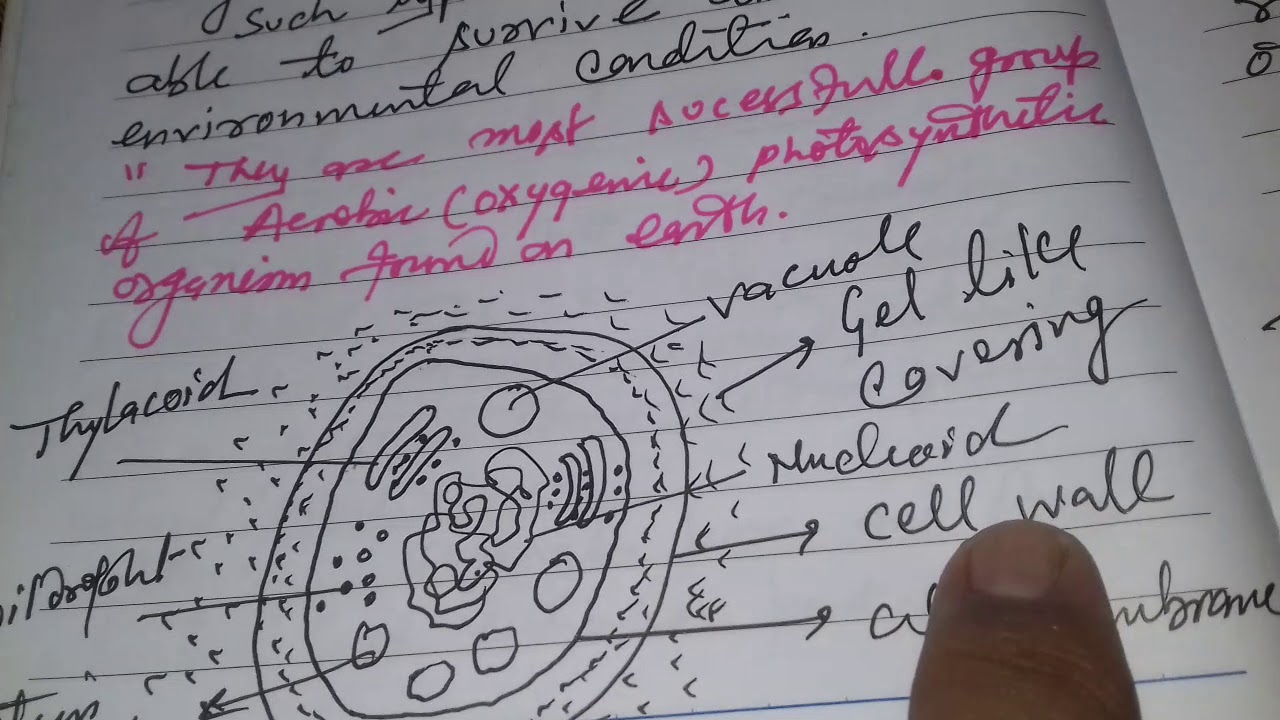 such
able to survive
environmental condition.
" They are most sucessfull group
of Aerobic (oxygenic) photosynthetic
organism found on earth.
vacuole
Gel like
covering
Thylacoid
Nucleoid
cell wall